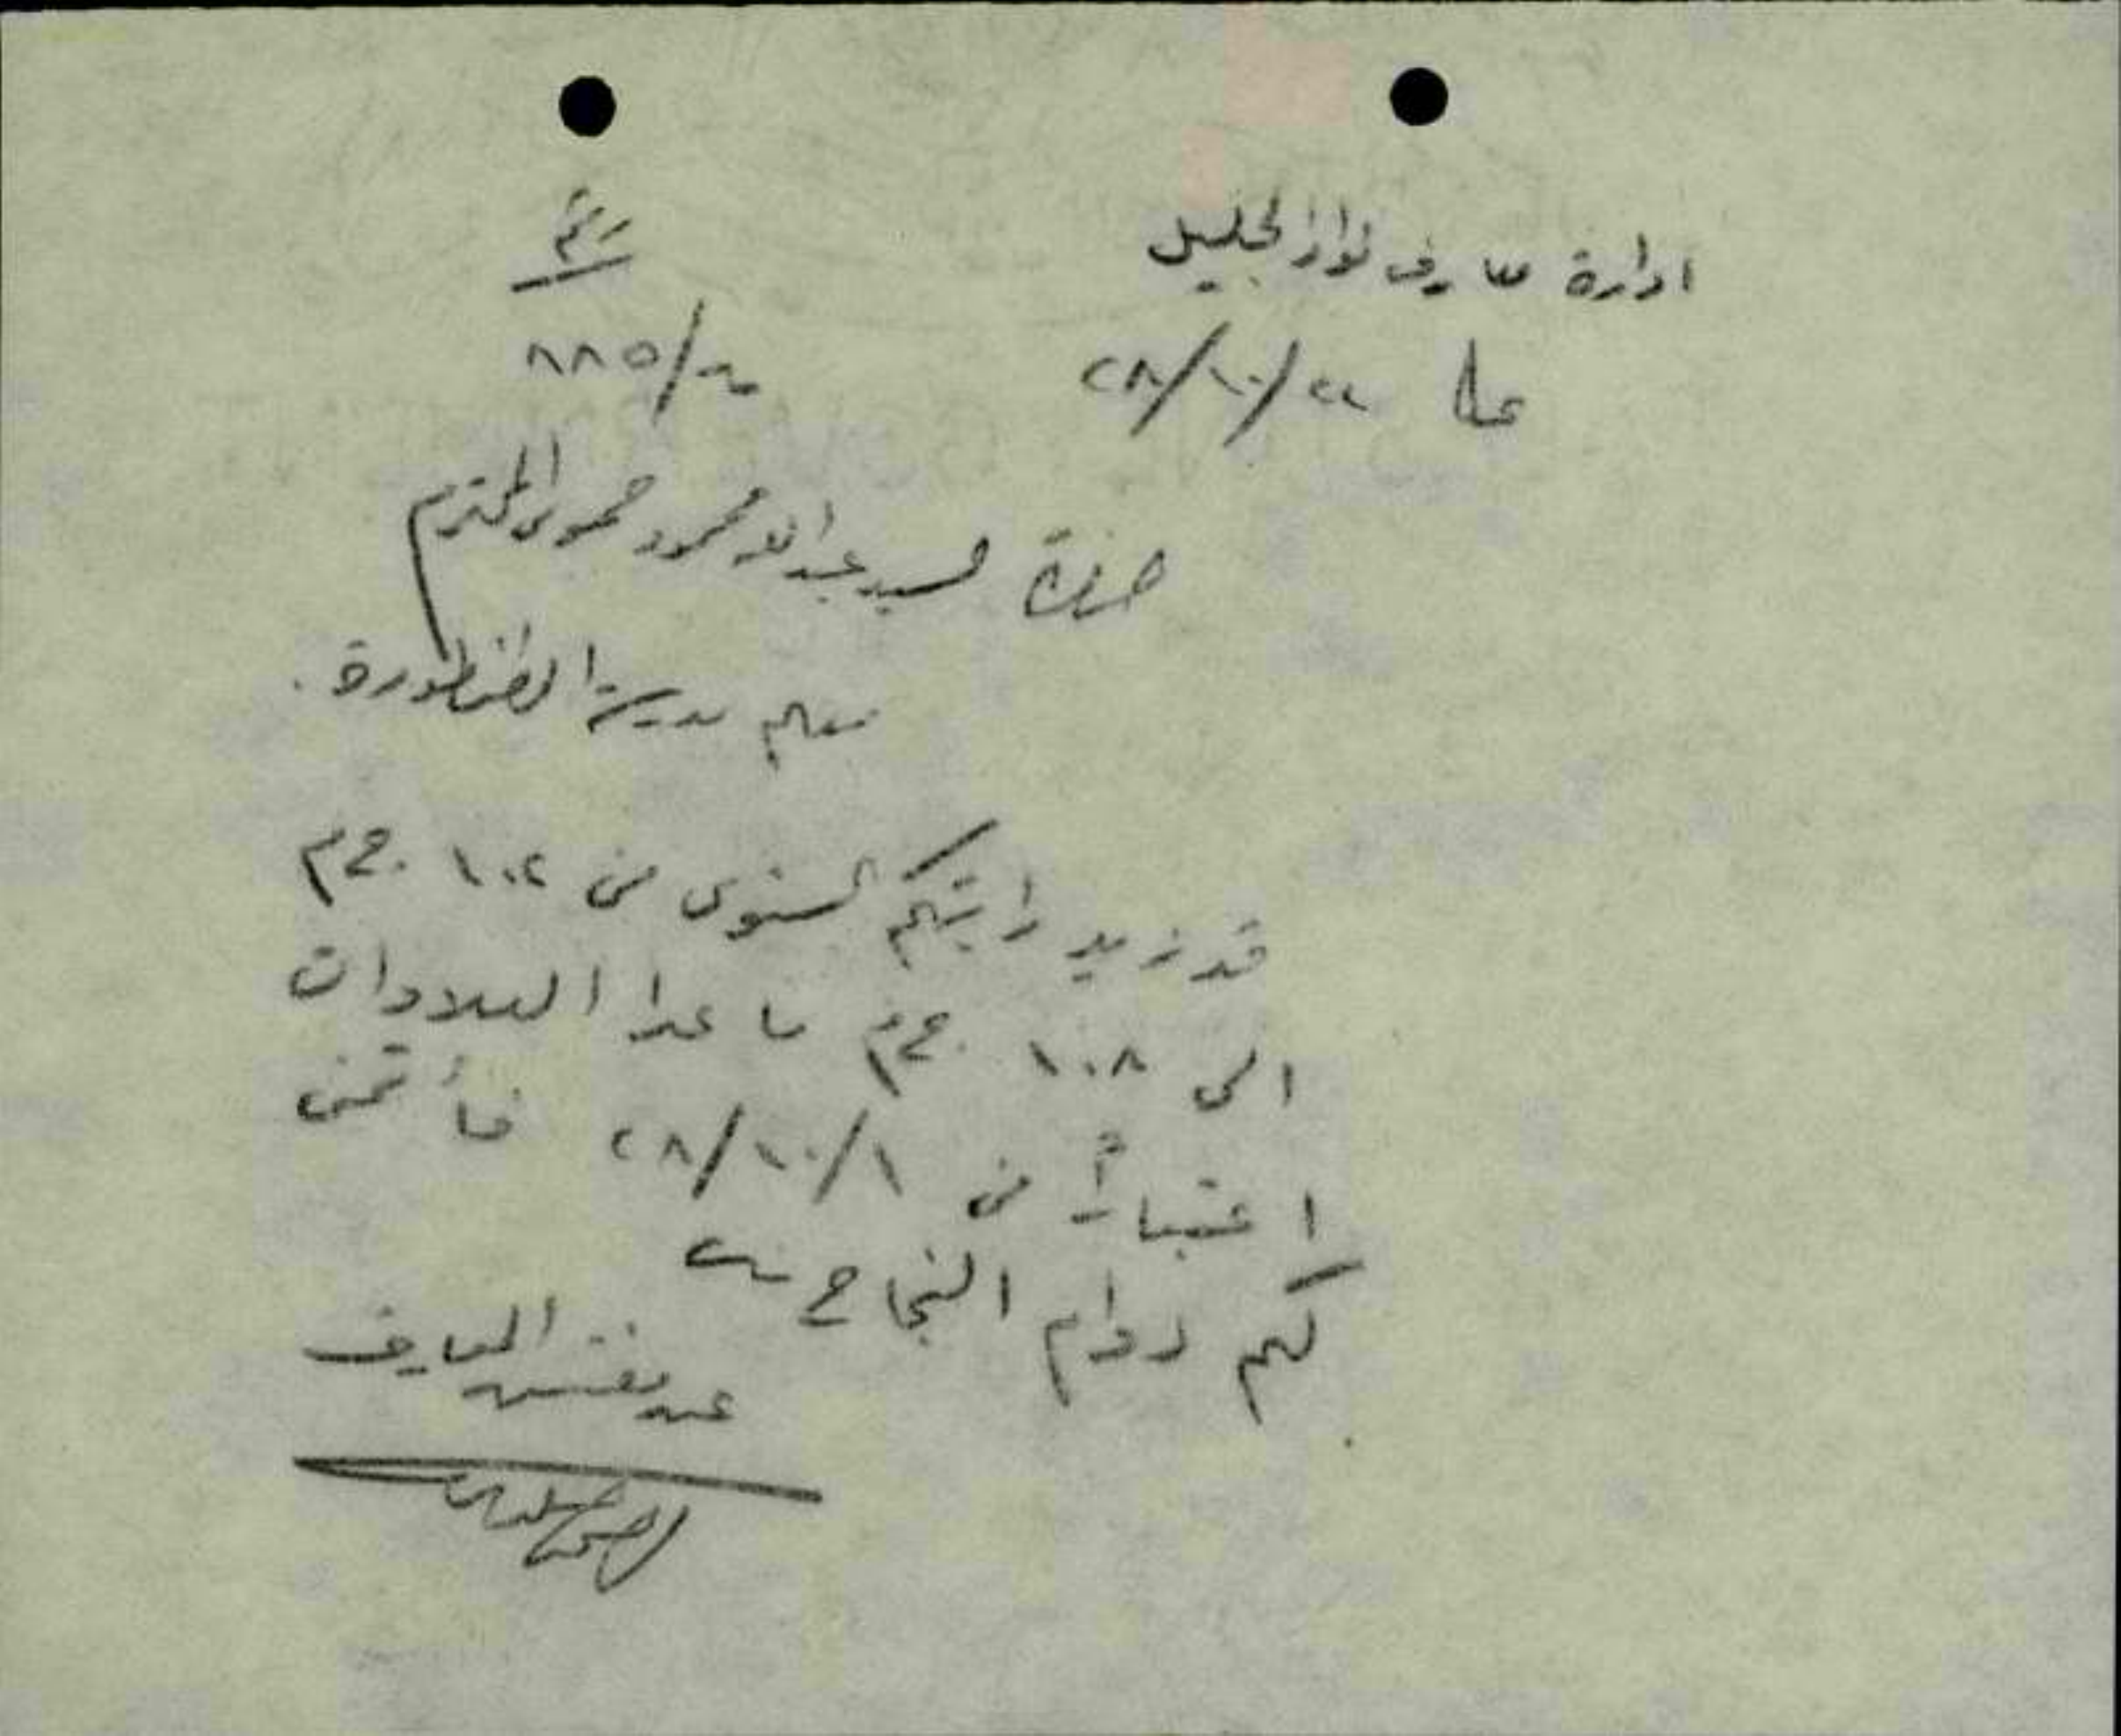 ادارة معارف لواء الجليل
عكا ٢٨/١٠/٢٢
حضرة السيد عبد الله محمود حموى المحترم
معلم مدرسة الطنطورة.
قد زيد راتبكم السنوى من ١٠٢ ج م
الى ١٠٨ ج م ما عدا العلاوات
اعتباراً من ٢٨/١٠/١ فأتمنى
لكم دوام النجاح
عن مفتش المعارف